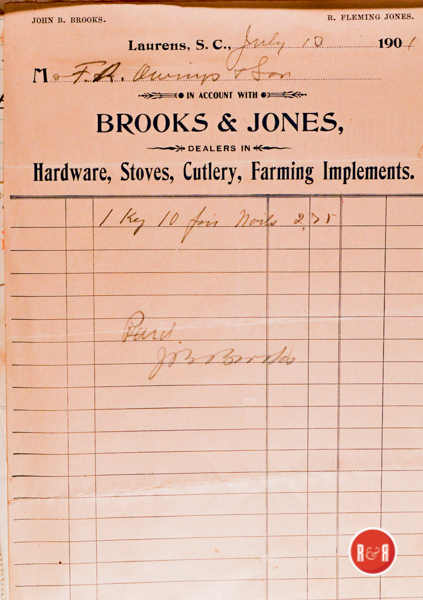 JOHN B. BROOKS. R. FLEMING JONES.
Laurens, S. C., July 13 1901
M F. R. Owings & Son
IN ACCOUNT WITH
BROOKS & JONES,
DEALERS IN
Hardware, Stoves, Cutlery, Farming Implements.
1 Keg 10 Nails 2.75
Paid.
J B Brooks
R&R